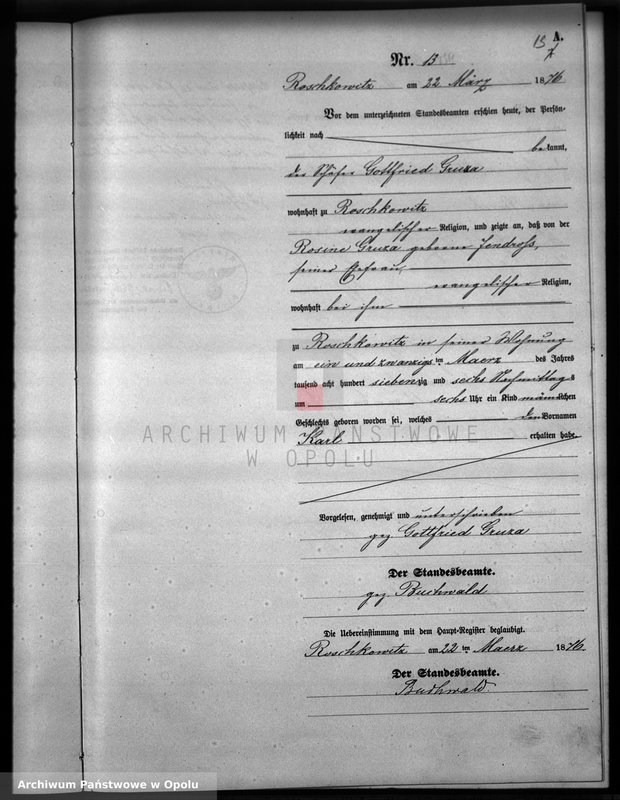 13 A.
Nr. 13
Roschkowitz am 22 März 1876
Vor dem unterzeichneten Standesbeamten erschien heute, der Persön-
lichkeit nach
bekannt,
der Schäfer Gottfried Gruza
wohnhaft zu Roschkowitz
evangelischer Religion, und zeigte an, daß von der
Rosine Gruza geborene Jendroß,
seiner Ehefrau,
evangelischer Religion,
wohnhaft bei ihm
zu Roschkowitz in seiner Wohnung
am ein und zwanzigsten Maerz des Jahres
tausend acht hundert siebenzig und sechs Nachmittags
um sechs Uhr ein Kind männlichen
Geschlechts geboren worden sei, welches den Vornamen
Karl erhalten habe.
Vorgelesen, genehmigt und unterschrieben
gez Gottfried Gruza
Der Standesbeamte.
gez. Buchwald
Die Uebereinstimmung mit dem Haupt-Register beglaubigt.
Roschkowitz am 22 ten Maerz 1876.
Der Standesbeamte.
Buchwald
ARCHIWUM PAŃSTWOWE
W OPOLU
Archiwum Państwowe w Opolu